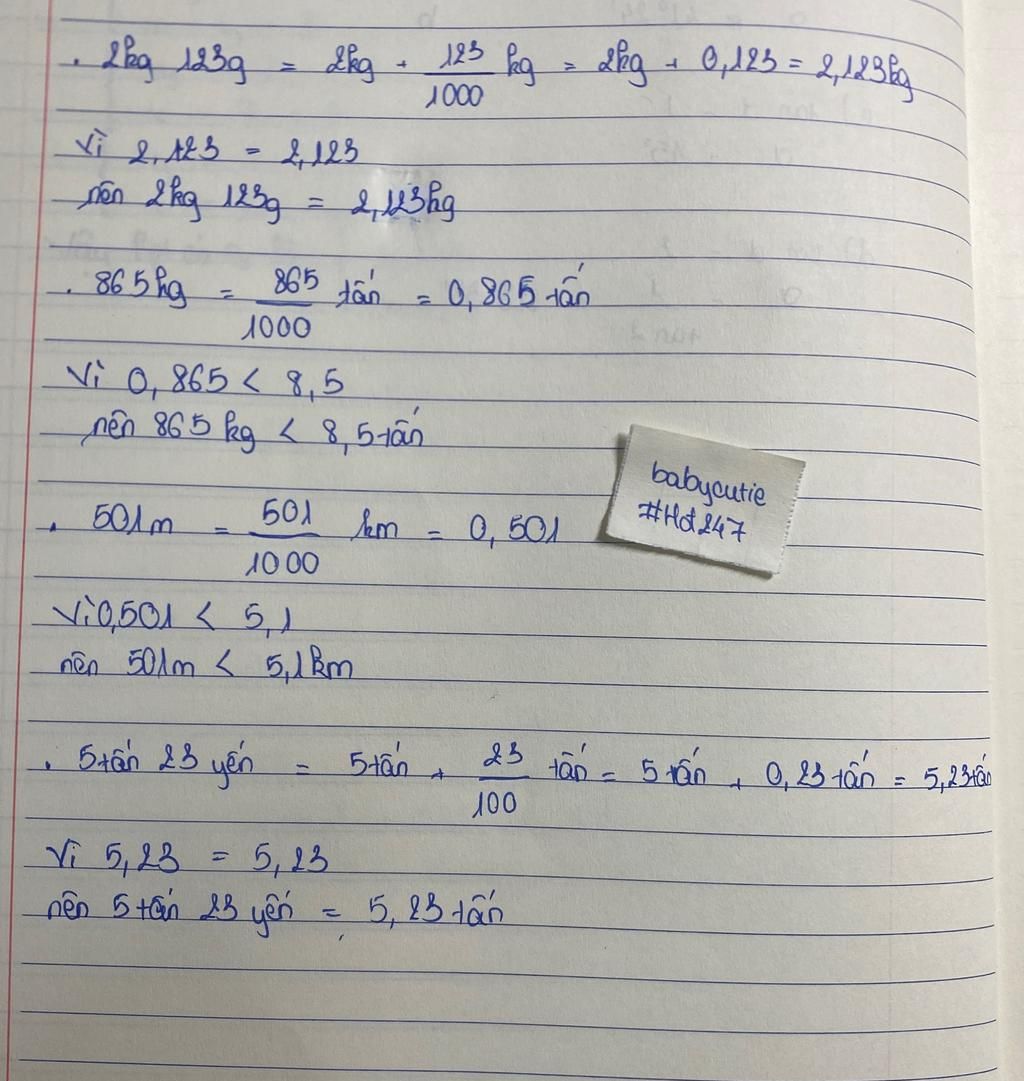 . 2kg 123g = 2kg + 123/1000 kg = 2kg + 0,123 = 2,123kg
Vì 2,123 = 2,123
nên 2kg 123g = 2,123kg
. 865kg = 865/1000 tấn = 0,865 tấn
Vì 0,865 < 8,5
nên 865 kg < 8,5 tấn
. 501m = 501/1000 km = 0,501
Vì 0,501 < 5,1
nên 501m < 5,1km
babycutie
#Hd247
. 5 tấn 23 yến = 5 tấn + 23/100 tấn = 5 tấn + 0,23 tấn = 5,23 tấn
Vì 5,23 = 5,23
nên 5 tấn 23 yến = 5,23 tấn